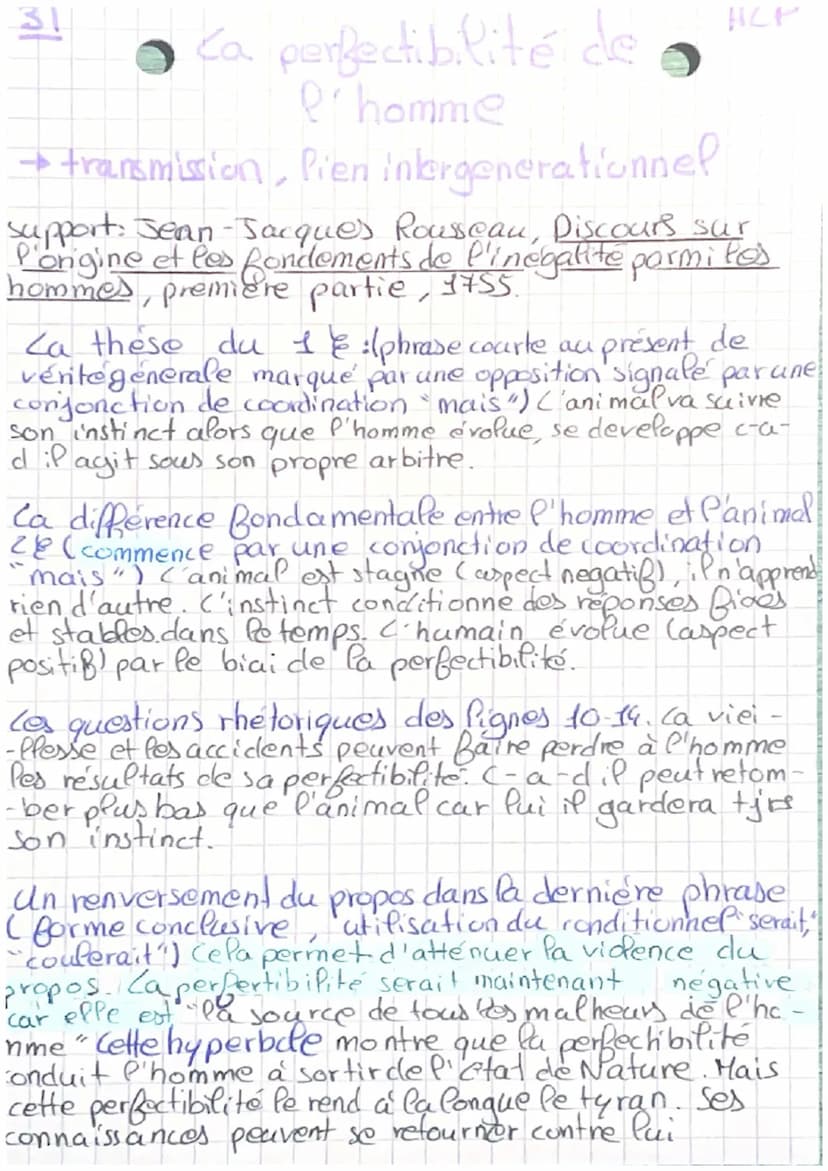 31 HLP
La perfectibilité de
l'homme
→ transmission, lien intergenerationnel
support: Jean-Jacques Rousseau, Discours sur
l'origine et les fondements de l'inégalité parmi les
hommes, première partie, 1755.
La thèse du 1 § :(phrase courte au présent de
vérité générale marqué par une opposition signalé par une
conjonction de coordination "mais") L'animal va suivre
son instinct alors que l'homme évolue, se developpe c-a-
d il agit sous son propre arbitre.
La différence fondamentale entre l'homme et l'animal
2§ (commence par une conjonction de coordination
"mais") L'animal est stagne (aspect negatif), il n'apprend
rien d'autre. L'instinct conditionne des réponses fixes
et stables dans le temps. L'humain évolue (aspect
positif) par le biai de la perfectibilité.
Les questions rhétoriques des lignes 10-14. La viei-
-llesse et les accidents peuvent faire perdre à l'homme
les résultats de sa perfectibilité. C-a-d il peut retom-
-ber plus bas que l'animal car lui il gardera tjrs
son instinct.
Un renversement du propos dans la dernière phrase
(forme conclusive, utilisation du conditionnel "serait,"
"coulerait") Cela permet d'atténuer la violence du
propos. La perfertibilité serait maintenant négative
car elle est "la source de tous les malheurs de l'ho-
mme" Cette hyperbole montre que la perfectibilité
conduit l'homme à sortir de l'état de Nature. Mais
cette perfectibilité le rend à la longue le tyran. Ses
connaissances peuvent se retourner contre lui